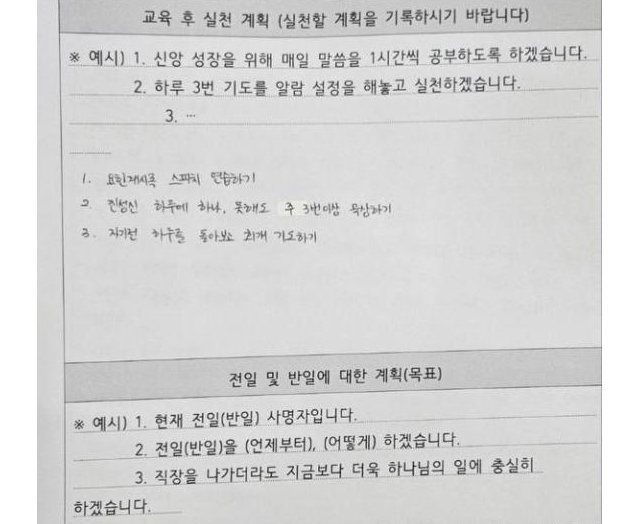 교육 후 실천 계획 (실천할 계획을 기록하시기 바랍니다)
※ 예시) 1. 신앙 성장을 위해 매일 말씀을 1시간씩 공부하도록 하겠습니다.
2. 하루 3번 기도를 알람 설정을 해놓고 실천하겠습니다.
3. …
1. 요한계시록 스피치 연습하기
2. 진성신 하루에 하나, 못해도 주 3번이상 묵상하기
3. 자기전 하루를 돌아보고 회개 기도하기
전일 및 반일에 대한 계획(목표)
※ 예시) 1. 현재 전일(반일) 사명자입니다.
2. 전일(반일)을 (언제부터), (어떻게) 하겠습니다.
3. 직장을 나가더라도 지금보다 더욱 하나님의 일에 충실히
하겠습니다.